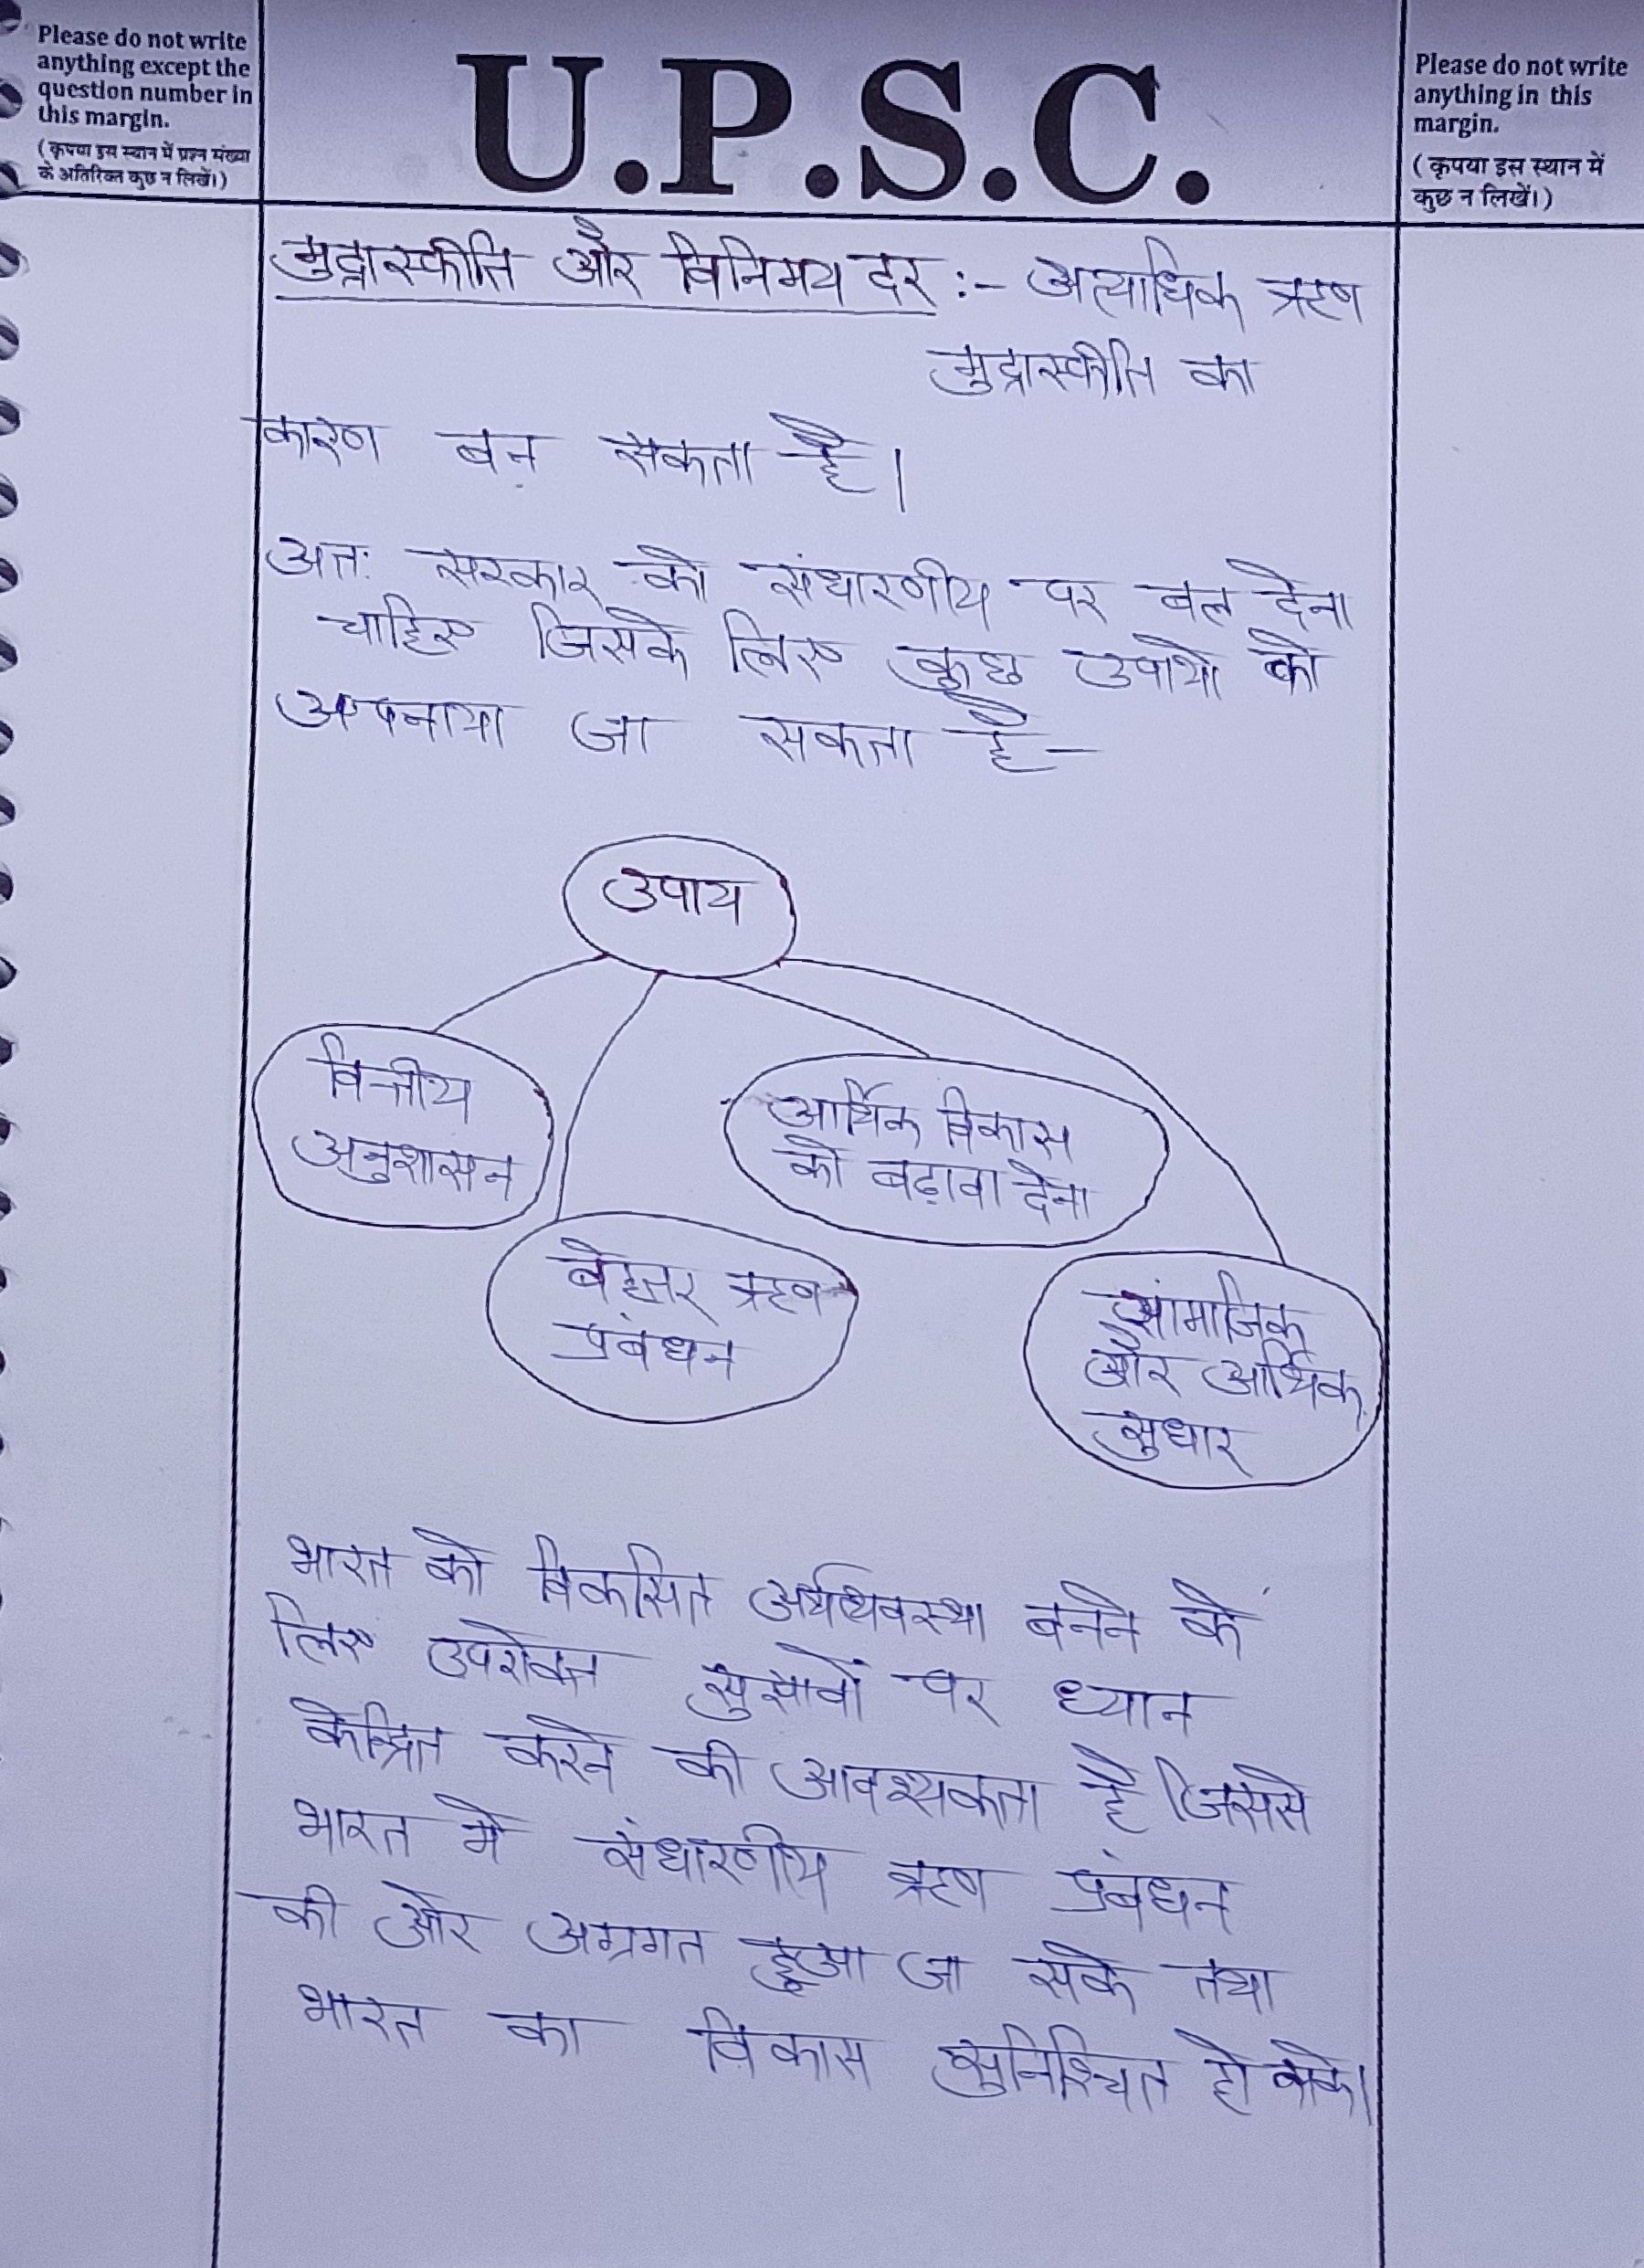 Please do not write
anything except the
question number in
this margin.
(कृपया इस स्थान में प्रश्न संख्या
के अतिरिक्त कुछ न लिखें।)
U.P.S.C.
Please do not write
anything in this
margin.
(कृपया इस स्थान में
कुछ न लिखें।)
मुद्रास्फीति और विनिमय दर :- अत्याधिक ऋण
मुद्रास्फीति का
कारण बन सकता है।
अतः सरकार को संधारणीय पर बल देना
चाहिए जिसके लिए कुछ उपायो को
अपनाया जा सकता है -
उपाय
वित्तीय
अनुशासन
आर्थिक विकास
को बढ़ावा देना
बेहतर ऋण
प्रबंधन
सामाजिक
और आर्थिक
सुधार
भारत को विकसित अर्थव्यवस्था बनने के
लिए उपरोक्त सुझावों पर ध्यान
केन्द्रित करने की आवश्यकता है जिससे
भारत मे संधारणीय ऋण प्रबंधन
की ओर अग्रगत हुआ जा सके तथा
भारत का विकास सुनिश्चित हो सके।